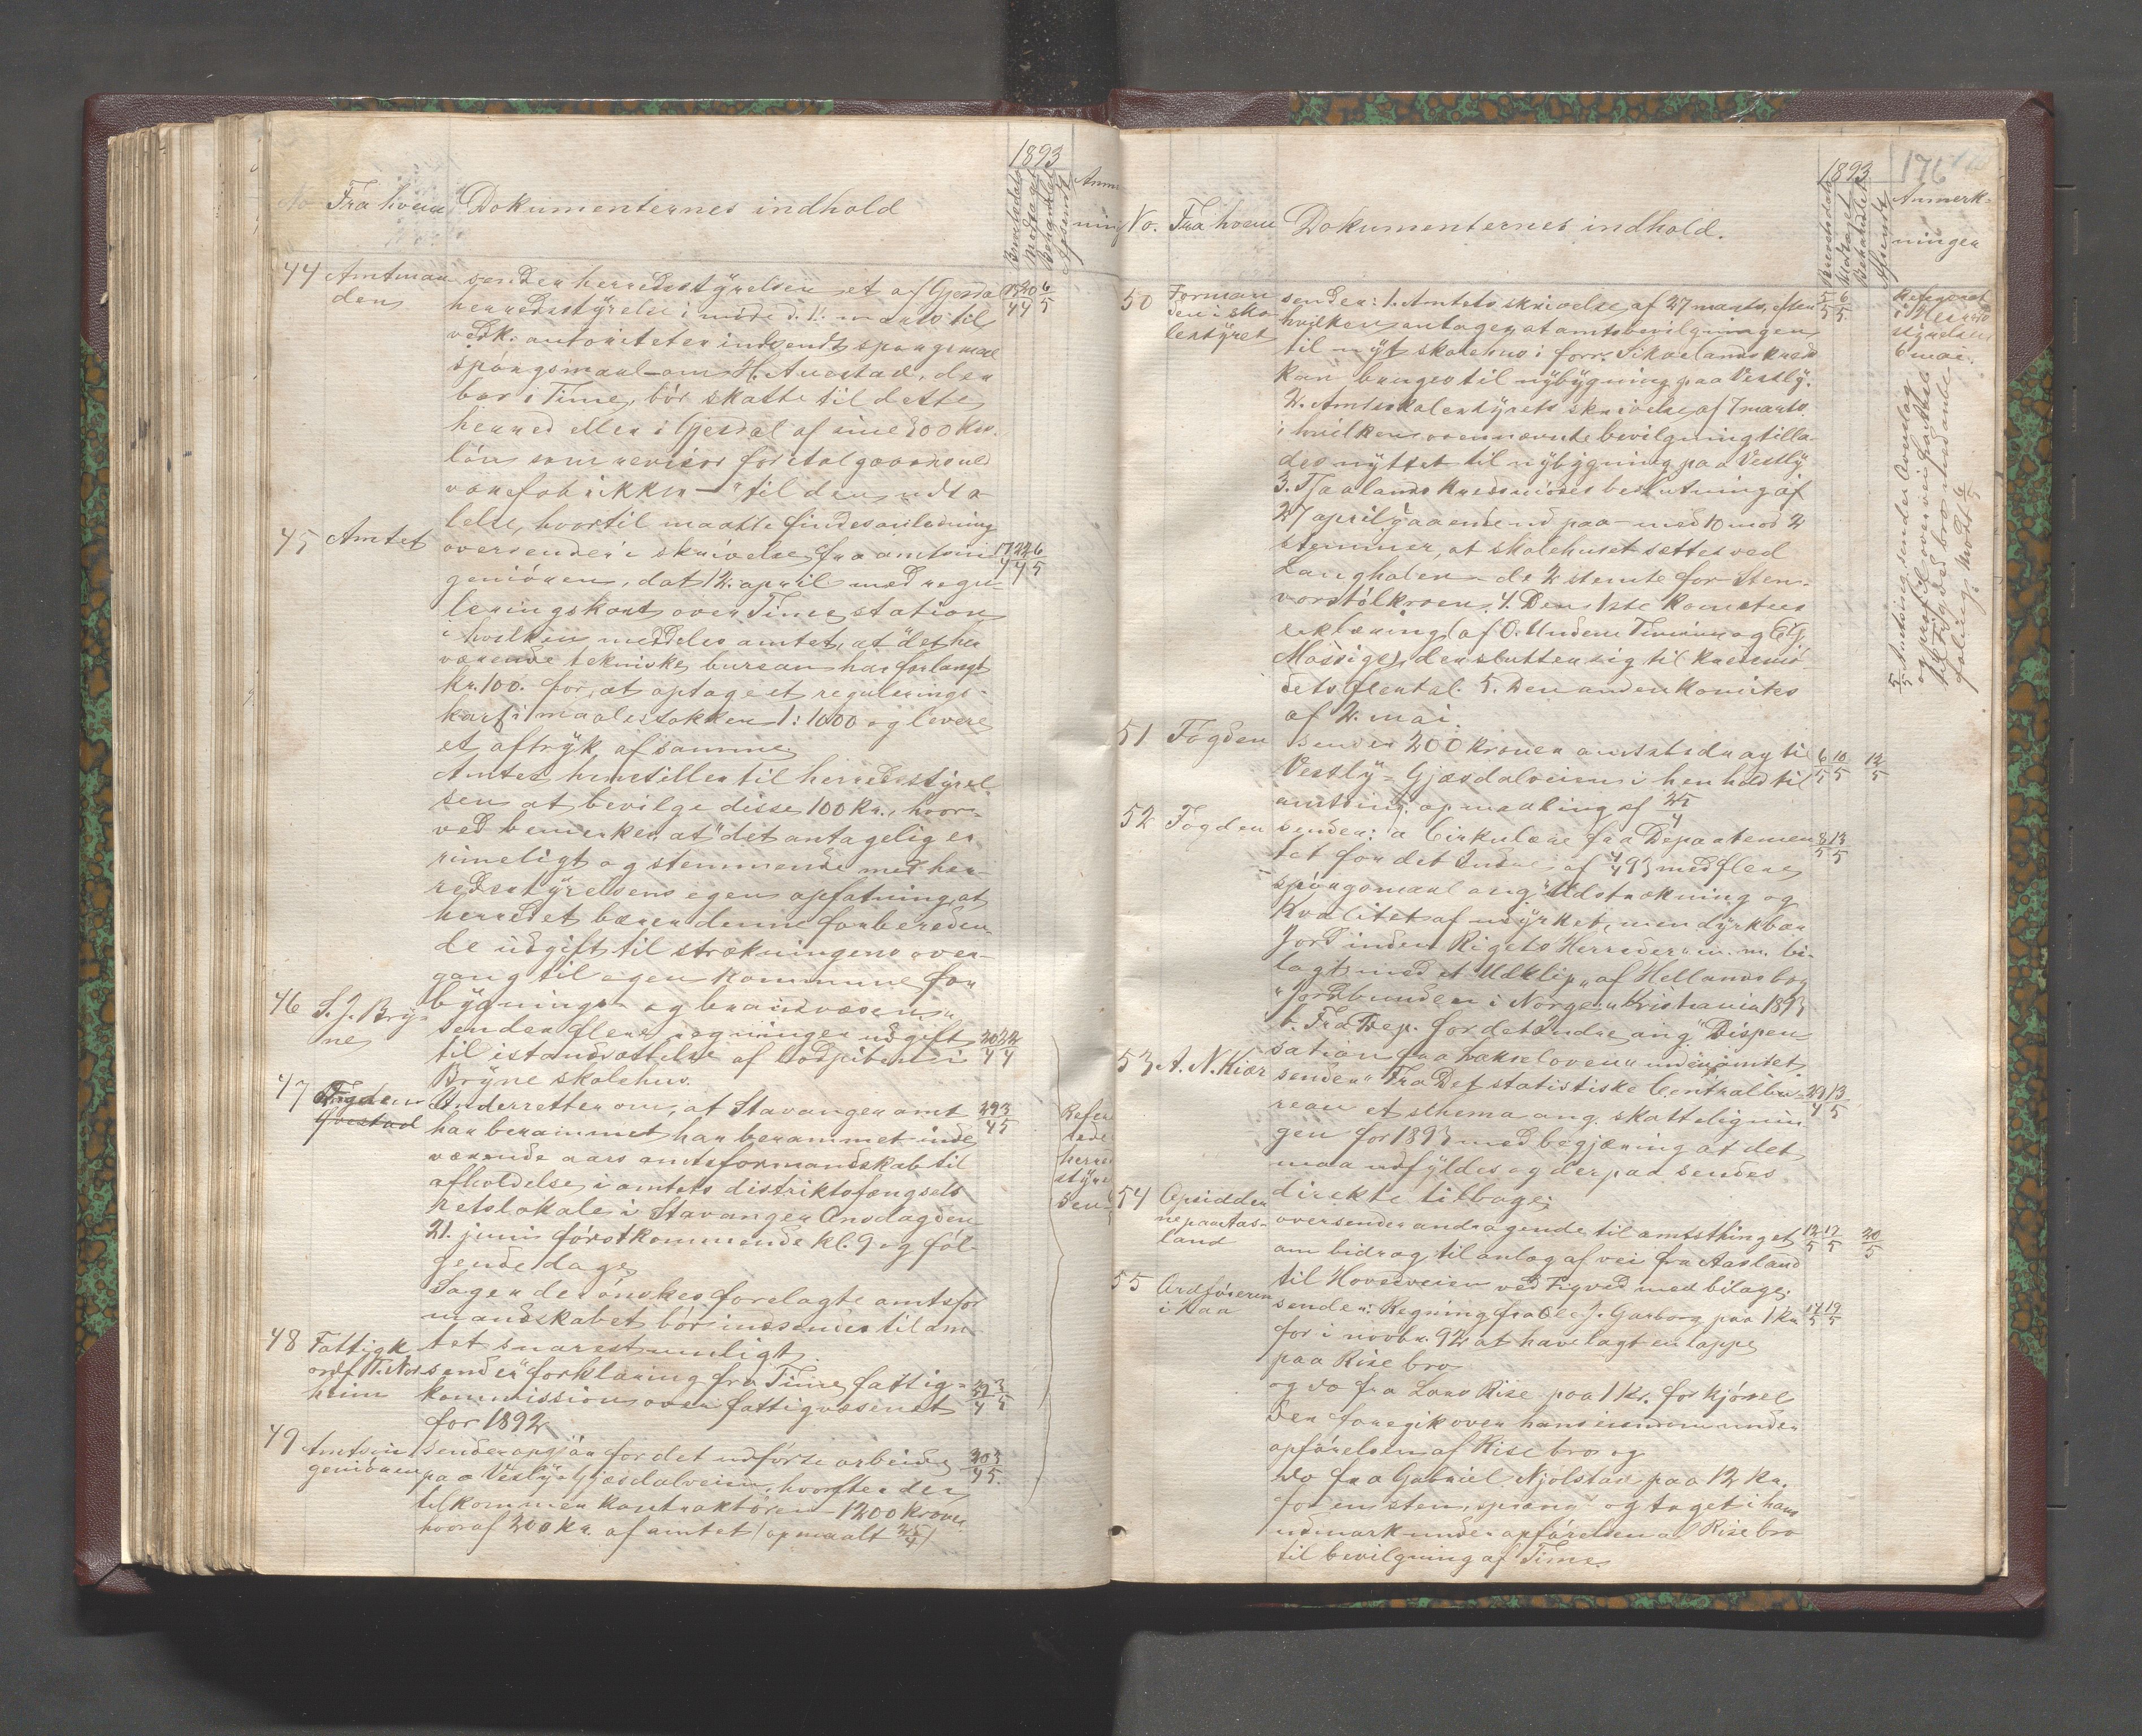 1893
No Fra hvem Dokumenternes indhold
Brevets dato Modtaget Behandlet Afsendt Anm
ning
44 Amtman sender herredsstyrelsen et af Gjesdal 20/4 6/5
den herredsstyrelse i møde d. 11. marts til
vedk. autoriteter indsendt spørgsmaal
spørgsmaal om H. Auestad, der
bor i Time, bør skatte til dette
herred eller i Gjesdal af sine 300 Kr.
løn som revisor for Aalgaards uld
varefabrikker – "til den udta
lelse, hvortil maatte findes anledning
45 Amtet oversender i skrivelse fra amtsin 17/4 22/4 6/5
geniøren, dat 12. april med regu-
leringskart over Time station
i hvilken meddeles amtet, at "det her
værende tekniske bureau har forlangt
kr. 100. for at optage et regulerings-
kart i maalestokken 1:1000 og levere
et aftryk af samme
Amtet henstiller til herredsstyrel
sen at bevilge disse 100 Kr., hvor-
ved bemerkes at "det antagelig er
rimeligt og stemmende med her-
redsstyrelsens egen opfatning, at
herredet bærer denne forbereden-
de udgift til strækningens over-
gang til egen kommune for
bygnings og brandvæsen"
46 S. J. Bry sender flere regninger udgift 20/4 22/4
ne til istandsættelse af lodpiben i
Bryne skolehus.
47 Fogden Underretter om, at Stavanger amt 29/4 3/5
Grestad har berammet har berammet inde
værende aars amtsformandskab til
afholdelse i amtets distriktsfængsels
retslokale i Stavanger Onsdag den
21. juni førstkommende kl. 9 og føl-
gende dage
Sager der ønskes forelagte amtsfor
mandskabet bør indsendes til am
tet snarest muligt.
Refe
rede
herre
styre
sen
48 Fattigk
ordf. T. Nor sender "forklaring fra Time fattig- 29/4 3/5
heim kommission over fattigvæsenet
for 1892
49 Amtsin sender opgjør for det udførte arbeide 30/4 3/5
geniøren paa Vestly-Gjesdalveien, hvorefter der
tilkommer kontraktøren 1200 kroner
hvoraf 200 Kr. af amtet (opmaalt 25/4)
176
1893
No. Fra hvem Dokumenternes indhold.
Brevets dato Modtaget Behandlet Afsendt Anmerk-
ninger
50 Forman sender: 1. Amtets skrivelse af 27 marts, efter 5/5 6/5
den i sko hvilken antages, at amtsbevilgningen
lestyret til nyt skolehus i forr. Sikvelands kreds
kan bruges til nybygning paa Vestly.
2. Amtsskolestyrets skrivelse af 7 marts
i hvilken ovennævnte bevilgning tilla-
des nyttet til nybygning paa Vestly
3. Tjaalands kredsmødes beslutning af
27 april gaaende ud paa – med 10 mod 2
stemmer, at skolehuset sættes ved
Langhalen – de 2 stemte for Sten-
4. Den 1ste Komites
erklæring (af O. Undem Tvinnu og
Mossige), der slutter sig til kredsmø
dets flertal. 5. Den anden komites
af 2. mai.
Refereret
i Herreds
styrelsen
6 mai.
5/5 Amtsing. sender Overslag
og profil over vei fra Aas
til Tigved bro med anbe
faling. Modt 6/5
51 Fogden sender 200 kroner amtsbidrag til 6/5 10/5 12/5
Vestly-Gjesdalveien i henhold til
amtsing. opmaaling af 25/4
52 Fogden sender: a Cirkulære fra Departemen 8/5 13/5
tet for det Indre af 4/4 93 med flere
spørgsmaal ang. "Udstrækning og
Kvalitet af udyrket, men dyrkbar
Jord inden Rigets Herreder" m. m. bi-
lagt med et Udklip af Hellands bog
"Jordbunden i Norge" Kristiania 1893
b. Fra Dep. for det Indre ang. "Dispen
sation fra Lakseloven" under amtet
53 A. N. Kiær sender "Fra Det statistiske Centralbu- 29/4 13/5
reau et schema ang. skatteligni
gen for 1893 med begjæring at det
maa udfyldes og derpaa sendes
direkte tilbage.
54 Opsidder
ne paa Aas- oversender andragende til amtsthinget 12/5 17/5 20/5
land om bidrag til anlæg af vei fra Aasland
til Hovedveien ved Tigved med bilage.
55 Ordføreren sender: Regning fra Ole J. Garborg paa 1 kr 17/5 19/5
i Haa for i novbr. 92 at have lagt en lappe
paa Rise bro
og do fra Lars Rise paa 1 Kr. for kjørsel
der foregik over hans eiendom under
opførelsen af Rise bro og
do fra Gabriel Njolstad paa 12 Kr.
for en sten, sprængt og taget i hans
udmark under opførelsen af Rise bro
til bevilgning af Time.